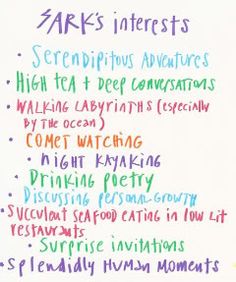 SARK's interests
• SERENDIPITOUS ADVENTURES
• HIGH TEA + DEEP CONVERSATIONS
• WALKING LABYRINTHS (ESPECIALLY
BY THE OCEAN)
• COMET WATCHING
• NIGHT KAYAKING
• Drinking poetry
• Discussing personal growth
• SUCCULENT SEAFOOD EATING IN LOW LIT
restaurants
• Surprise invitations
• SPLENDIDLY HUMAN MOMENTS